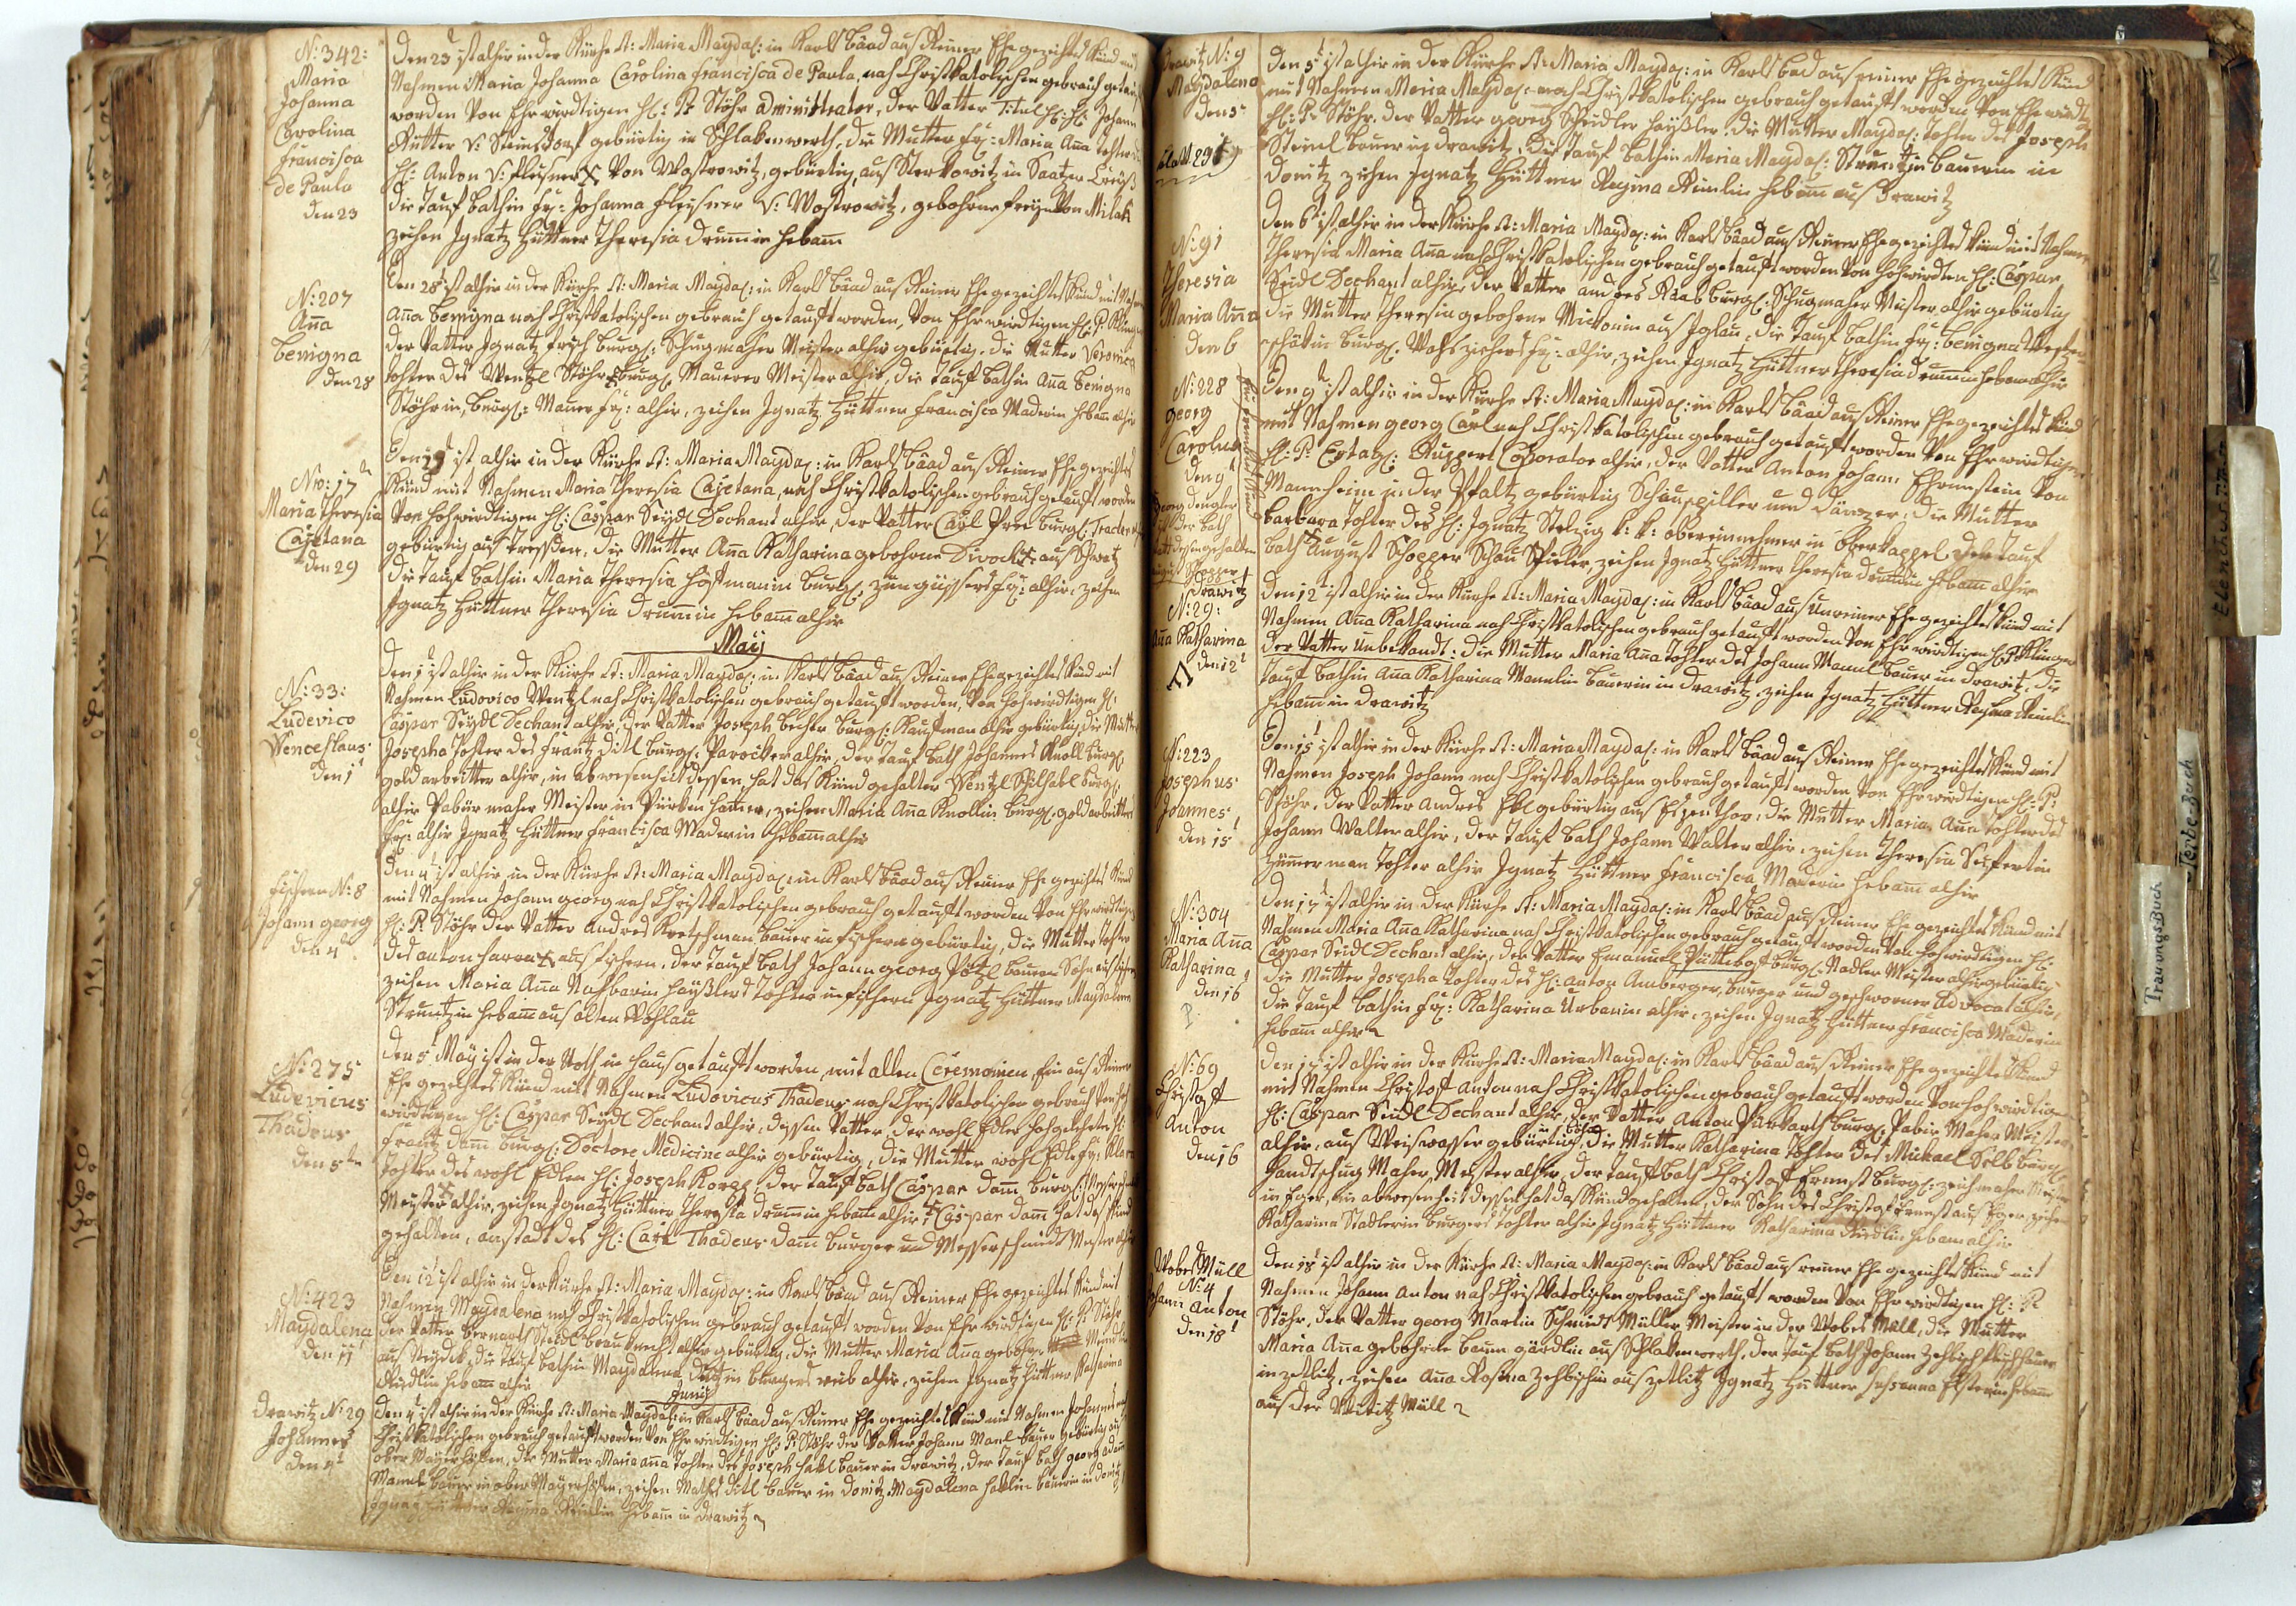 N: 342:
Maria
Johanna
Carolina
francisca
de Paula
den 23
Den 23t ist alhir in der Kürche St: Maria Magdal: in Karls baad aus Reiner Ehe gezeichtes Kind mit
Nahmen Maria Johanna Carolina francisca de Paula, nach Christkatolischen gebrauch getauft
worden von Ehrwirdtigen H: P: Stöhr administrator, der Vatter Titul H: H: Johann
Rutter v: Steinsdorf gebürtig in Schlakenwerth, die Mutter fr: Maria Ana tochter
H: Anton v: fleisner von Wostrowitz, gebürtig aus Sterkowitz in Saatzer Creiß
die Tauf bathin fr: Johanna fleisner v: Wostrowitz, gebohrne freyin von Milak
zeichen Ignatz Hüttner Theresia Drumin Hebam
N: 207
Ana
Benigna
den 28
Den 28t ist alhir in der Kürche St: Maria Magdal: in Karls baad aus Reiner Ehe gezeichtes Kind mit
Ana Benigna nach Christkatolischen gebrauch getauft worden, von Ehrwirdtigen H: P: Klinger
der Vatter Ignatz frisch burgl: Schugmacher Meister alhir gebürtig, die Mutter Veronica
tochter des Wentzl Stöhr burgl: Maurer Meister alhir, die Tauf bathin Ana Benigna
Stöhrin, burgl: Maurer fr: alhir, zeichen Ignatz Hüttner francisca Maderin Hebam alhir
Nro: 17
Maria Theresia
Cajetana
den 29
Den 29 ist alhir in der Kürche St: Maria Magdal: in Karls baad aus Reiner Ehe gezeichtes
Kind mit Nahmen Maria Theresia Cajetana, nach Christkatolischen gebrauch getauft worden
von Hochwirdtigen H: Caspar Seydl Dechant alhir, der Vatter Carl burgl: Tracteur
gebürtig aus Dressden, die Mutter Ana Katharina gebohrne aus
die Tauf bathin Maria Theresia Hofmanin burgl: zungüssers fr: alhir, zeichen
Ignatz Hüttner Theresia Drumin Hebam alhir
Maij
N: 33:
Ludovico
Wenceslaus
den 1t
Den 1t ist alhir in der Kürche St: Maria Magdal: in Karls baad aus Reiner Ehe gezeichtes Kind mit
Nahmen Ludovico Wentzl nach Christkatolischen gebrauch getauft worden, von Hochwirdtigen H:
Caspar Seydl Dechant alhir, der Vatter Joseph Becher burgl: Kaufman alhir gebürtig, die Mutter
Josepha tochter des frantz Ditl burgl: alhir, der Tauf bath Johannes Knoll burgl:
goldarbeitter alhir, in abwesenheit dessen, hat das Kind gehalten Wentzl burgl:
alhir Pabür macher Meister in zeichen Maria Ana Knollin burgl: goldarbeitters
fr: alhir Ignatz Hüttner francisca Maderin Hebam alhir
fischern N: 8
Johann georg
den 4t
Den 4t ist alhir in der Kürche St: Maria Magdal: in Karls baad aus Reiner Ehe gezeichtes Kind
mit Nahmen Johann georg nach Christkatolischen gebrauch getauft worden von Ehrwirdtigen
H: P: Stöhr der Vatter Andres Kretschman bauer in fischern gebürtig, die Mutter tochter
des anton aus fischern, der Tauf bath Johann georg Pötzl bauern Sohn aus fischern
zeichen Maria Ana Nachbarin Haüßlers tochter in fischern Ignatz Hüttner Magdalena
Struntzin Hebam aus alten Rohlau
N: 275
Ludovicus
Thadeus
den 5ten
Den 5t Maij ist in der Noth in Haus getauft worden, mit allen Ceremonien, ein aus Reiner
Ehe gezeichtes Kind mit Nahmen Ludovicus Thadeus nach Christkatolischen gebrauch von Hoch
wirdtigen H: Caspar Seydl Dechant alhir, dessen Vatter, der wohl Edler Hochgelehrte H:
frantz Dam burgl: Doctore Medicine alhir gebürtig, die Mutter wohl Edle fr: Clara
tochter des wohl Edlen H: Joseph der Tauf bath Caspar Dam burgl: Messerschmidt
Meister alhir, zeichen Ignatz Hüttner Theresia Drumin Hebam alhir, Caspar Dam hat das Kind
gehalten, anstadt des H: Carl Thadeus Dam burger und Messerschmidt Meister alhir
N: 423
Magdalena
den 11
Den 12t ist alhir in der Kürche St: Maria Magdal: in Karls baad aus Reiner Ehe gezeichtes Kind mit
Nahmen Magdalena nach Christkatolischen gebrauch getauft worden von Ehrwirdtigen H: P: Stöhr
der Vatter bernart Seidl alhir gebürtig, die Mutter Maria Ana gebohrne
aus Neydek, die Tauf bathin Magdalena burgers weib alhir, zeichen Ignatz Hüttner Katharina
Riedlin Hebam alhir
Junij
Drawitz N: 29
Johannes
den 4t
Den 4t ist alhir in der Kürche St: Maria Magdal: in Karls baad aus Reiner Ehe gezeichtes Kind mit Nahmen Johannes nach
Christkatolischen gebrauch getauft worden von Ehrwirdtigen H: P: Stöhr der Vatter Johann Manl bauer gebürtig aus
ober Mayerhöfen, die Mutter Maria Ana tochter des Joseph bauer in Drawitz, der Tauf bath georg adam
Manl bauer in ober Mayerhöfen, zeichen Mathes Ditl bauer in Donitz Magdalena bäuerin in Donitz
Ignatz Hüttner Regina Hebam in Drawitz
Drawitz N: 9
Magdalena
den 5t
Den 5t ist alhir in der Kürche St: Maria Magdal: in Karls bad aus reiner Ehe gezeichtes Kind
mit Nahmen Maria Magdal: nach Christkatolischen gebrauch getauft worden von Ehrwirdt
H: P: Stöhr. der Vatter georg Schindler Haÿßler: die Mutter Magdal: tochter des Joseph
Steinl bauer in Drawitz, die Tauf bathin Maria Magdal: Struntzin bauerin in
Donitz zeichen Ignatz Hüttner Regina Hebam aus Drawitz
N: 91
Theresia
Maria Ana
den 6
Den 6t ist alhir in der Kürche St: Maria Magdal: in Karls baad aus Reiner Ehe gezeichtes Kind mit Nahmen
Theresia Maria Ana nach Christkatolischen gebrauch getauft worden von Hochwirdten H: Caspar
Seidl Dechant alhir, der Vatter andres Raab burgl: Schugmacher Meister alhir gebürtig
die Mutter Theresia gebohrne aus Iglau, die Tauf bathin fr: benigna
burgl: Wachsziehers fr: alhir, zeichen Ignatz Hüttner Theresia Drumin Hebam alhir
N: 228
georg
Carolus
den 9t
Den 9t ist alhir in der Kürche St: Maria Magdal: in Karls baad aus Reiner Ehe gezeichtes Kind
mit Nahmen georg Carl nach Christkatolischen gebrauch getauft worden von Ehrwirdtigen
H: P: Ruppert Coporator alhir, der Vatter Anton Johann Ehrenstein von
Mannheim in der Pfaltz gebürtig Schauspiller und Däntzer, die Mutter
barbara tochter des H: Ignatz Stelzig k: k: obereinnehmer in oberkappel der Tauf
bath August Schopper Schau Spieler, zeichen Ignatz Hüttner Theresia Drumin Hebam alhir
Drawitz
N: 29:
Ana Katharina
den 12t
Den 12t ist alhir in der Kürche St: Maria Magdal: in Karls baad aus Unreiner Ehe gezeichtes Kind mit
Nahmen Ana Katharina nach Christkatolischen gebrauch getauft worden von Ehrwirdtigen H: P: Klinger
der Vatter Unbekandt: die Mutter Maria Ana tochter des Johann Manl bauer in Drawitz, die
Tauf bathin Ana Katharina Manlin bäuerin in Drawitz, zeichen Ignatz Hüttner Regina
Hebam in Drawitz
N: 223
Josephus
Joannes
den 15t
Den 15t ist alhir in der Kürche St: Maria Magdal: in Karls baad aus Reiner Ehe gezeichtes Kind mit
Nahmen Joseph Johann nach Christkatolischen gebrauch getauft worden von Ehrwirdtigen H: P:
Stöhr, der Vatter andres gebürtig aus die Mutter Maria Ana tochter des
Johann Walter alhir, der Tauf bath Johann Walter alhir, zeichen Theresia Seifertin
Zimmerman tochter alhir Ignatz Hüttner francisca Maderin Hebam alhir
N: 304
Maria Ana
Katharina
den 16
Den 17t ist alhir in der Kürche St: Maria Magdal: in Karls baad aus Reiner Ehe gezeichtes Kind mit
Nahmen Maria Ana Katharina nach Christkatolischen gebrauch getauft worden von Hochwirdtigen H:
Caspar Seidl Dechant alhir, der Vatter Emanuel Püttbost burgl: Nadler Meister alhir gebürtig
die Mutter Josepha tochter des H: Anton Amberger, burger und geschworner Advocat alhir,
die Tauf bathin fr: Katharina Urbanin alhir, zeichen Ignatz Hüttner francisca Maderin
Hebam alhir
N: 69
Christoff
Anton
den 16
Den 17t ist alhir in der Kürche St: Maria Magdal: in Karls baad aus Reiner Ehe gezeichtes Kind
mit Nahmen Christof Anton nach Christkatolischen gebrauch getauft worden von Hochwirdtigen
H: Caspar Seidl Dechant alhir, der Vatter Anton burgl: Pabür Macher Meister
alhir, aus Weiswasser gebürtig, die Mutter Katharina tochter des Michael burgl:
Handtschug Macher Meister alhir, der Tauf bath Christof Ernst burgl: zeichmacher Meister
in Eger, in abwesenheit dessen hat das Kind gehalten, der Sohn des Christof Ernst aus Eger zeichen
Katharina Stadlerin burgers tochter alhir Ignatz Hüttner Katharina Riedlin Hebam alhir
Wobes Müll
N: 4
Johann Anton
den 18t
Den 18t ist alhir in der Kürche St: Maria Magdal: in Karls baad aus reiner Ehe gezeichtes Kind mit
Nahmen Johann Anton nach Christkatolischen gebrauch getauft worden von Ehrwirdtigen H: P:
Stöhr, der Vatter georg Martin Schmidt Müller Meister in der Wobes Müll, die Mutter
Maria Ana gebohrne Baum gärdlin aus Schlakenwerth, der Tauf bath Johann Fleischhauer
in zetlitz, zeichen Ana Rosina aus zetlitz Ignatz Hüttner Susanna Hebam
aus der Müll
Elenchus
Sterbe-Buch
Trauungs Buch